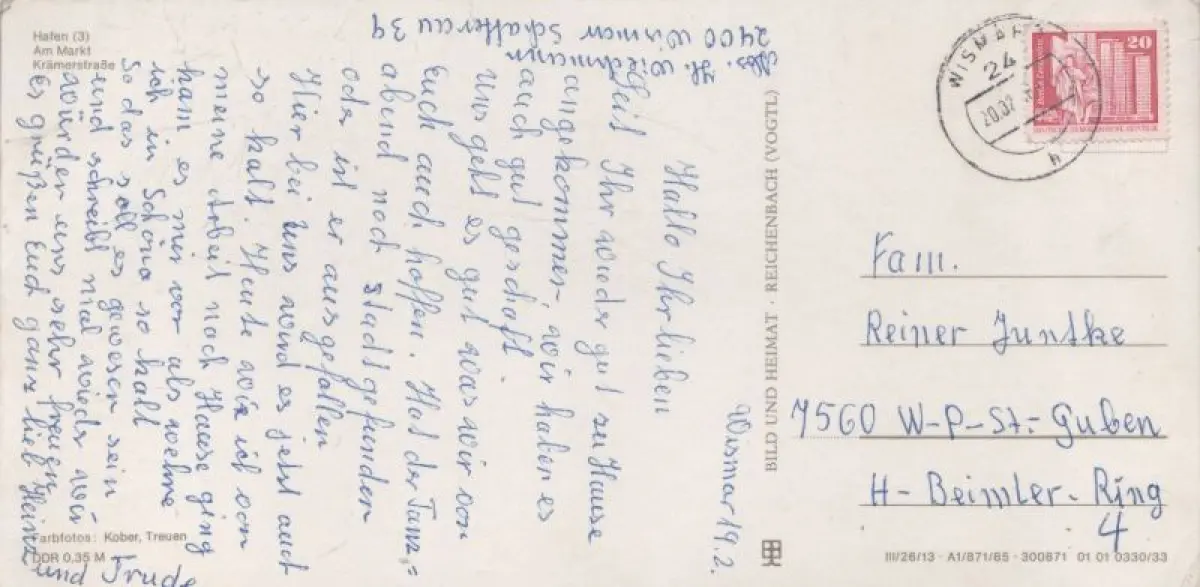 Hafen (3)
Am Markt
Krämerstraße
Abs. H. Wiechmann
2400 Wismar Schatterau 39
Wismar 19.2.
Hallo Ihr lieben
Seit Ihr wieder gut zu Hause
angekommen, wir haben es
auch gut geschaft.
Uns geht es gut was wir von
Euch auch hoffen. Hat der Tanz=
abend noch stadtgefunden
oder ist er ausgefallen
Hier bei Uns wird es jetzt auch
so kalt. Heute wie ich von
meine Arbeit nach Hause ging
kam es mir vor als wehre
ich in so kalt
so das soll es gewesen sein
und schreibt mal wieder wir
würden uns sehr freuen
Es grüßen Euch ganz lieb Heinz
und Trude
Farbfotos: Kober, Treuen
DDR 0,35 M
BILD UND HEIMAT · REICHENBACH (VOGTL)
WISMAR
24
20.02
h
20
Fam.
Reiner Juntke
7560 W-P-St. Guben
H-Beimler-Ring
4
III/26/13 · A1/871/85 · 300871 01 01 0330/33